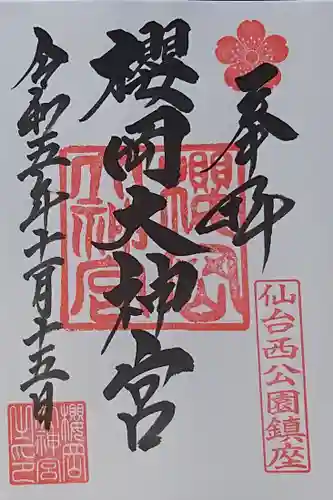 奉拝
仙台西公園鎮座
櫻岡大神宮
櫻岡大神宮
令和五年十一月十五日
櫻岡神宮之印